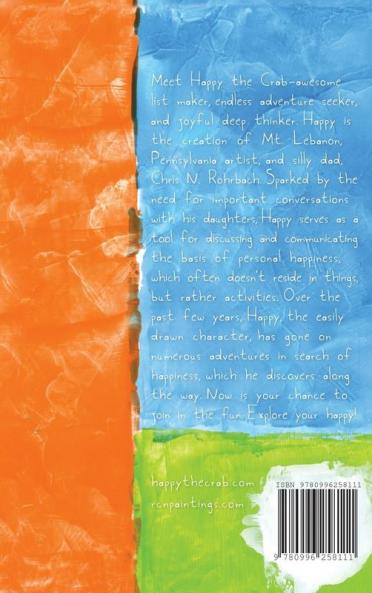 Meet Happy the Crab-awesome
list maker, endless adventure seeker,
and joyful deep thinker. Happy is
the creation of Mt. Lebanon,
Pennsylvania artist, and silly dad,
Chris N. Rohrbach. Sparked by the
need for important conversations
with his daughters, Happy serves as a
tool for discussing and communicating
the basis of personal happiness,
which often doesn't reside in things,
but rather activities. Over the
past few years, Happy, the easily
drawn character, has gone on
numerous adventures in search of
happiness, which he discovers along
the way. Now is your chance to
join in the fun. Explore your happy!
happythecrab.com
rcnpaintings.com
ISBN 9780996258111
9 780996 258111